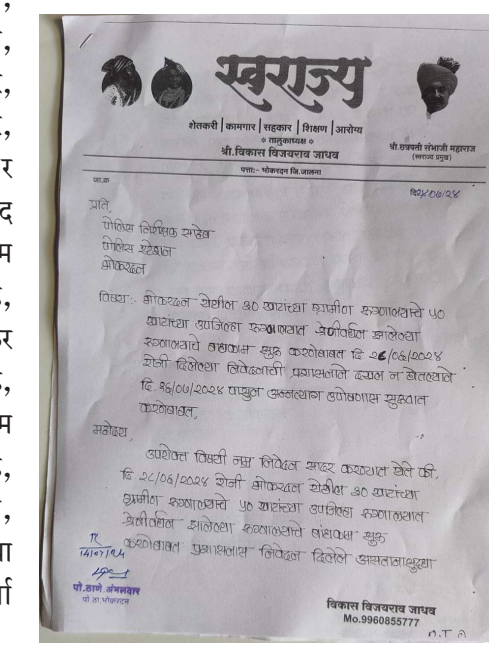 स्वराज्य
शेतकरी | कामगार | सहकार | शिक्षण | आरोग्य
* तालुकाध्यक्ष *
श्री.विकास विजयराव जाधव
श्री.छत्रपती संभाजी महाराज
(स्वराज्य प्रमुख)
पत्ता:- भोकरदन जि.जालना
जा.क्र
प्रति,
पोलिस निरीक्षक साहेब
पोलिस स्टेशन
भोकरदन
विषय:- भोकरदन येथील ३० खाटांच्या ग्रामीण रुग्णालयाचे ५०
खाटांच्या उपजिल्हा रुग्णालयात श्रेणीवर्धन झालेल्या
रुग्णालयाचे बांधकाम सुरू करणेबाबत दि २८/०६/२०२४
रोजी दिलेल्या निवेदनाची प्रशासनाने दखल न घेतल्याने
दि १६/०७/२०२४ पासुन अन्नत्याग उपोषणास सुरुवात
करणेबाबत,
महोदय,
उपरोक्त विषयी नम्र निवेदन सादर करण्यात येते की,
दि २८/०६/२०२४ रोजी भोकरदन येथील ३० खाटांच्या
ग्रामीण रुग्णालयाचे ५० खाटांच्या उपजिल्हा रुग्णालयात
श्रेणीवर्धन झालेल्या रुग्णालयाचे बांधकाम सुरू
करणेबाबत प्रशासनास निवेदन दिलेले असतानासुध्दा
14/07/24
पो.ठाणे अंमलदार
पो.ठा.भोकरदन
विकास विजयराव जाधव
Mo.9960855777